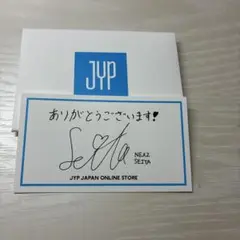 JYP
ありがとうございます!
Seita
NEXZ
SEITA
JYP JAPAN ONLINE STORE